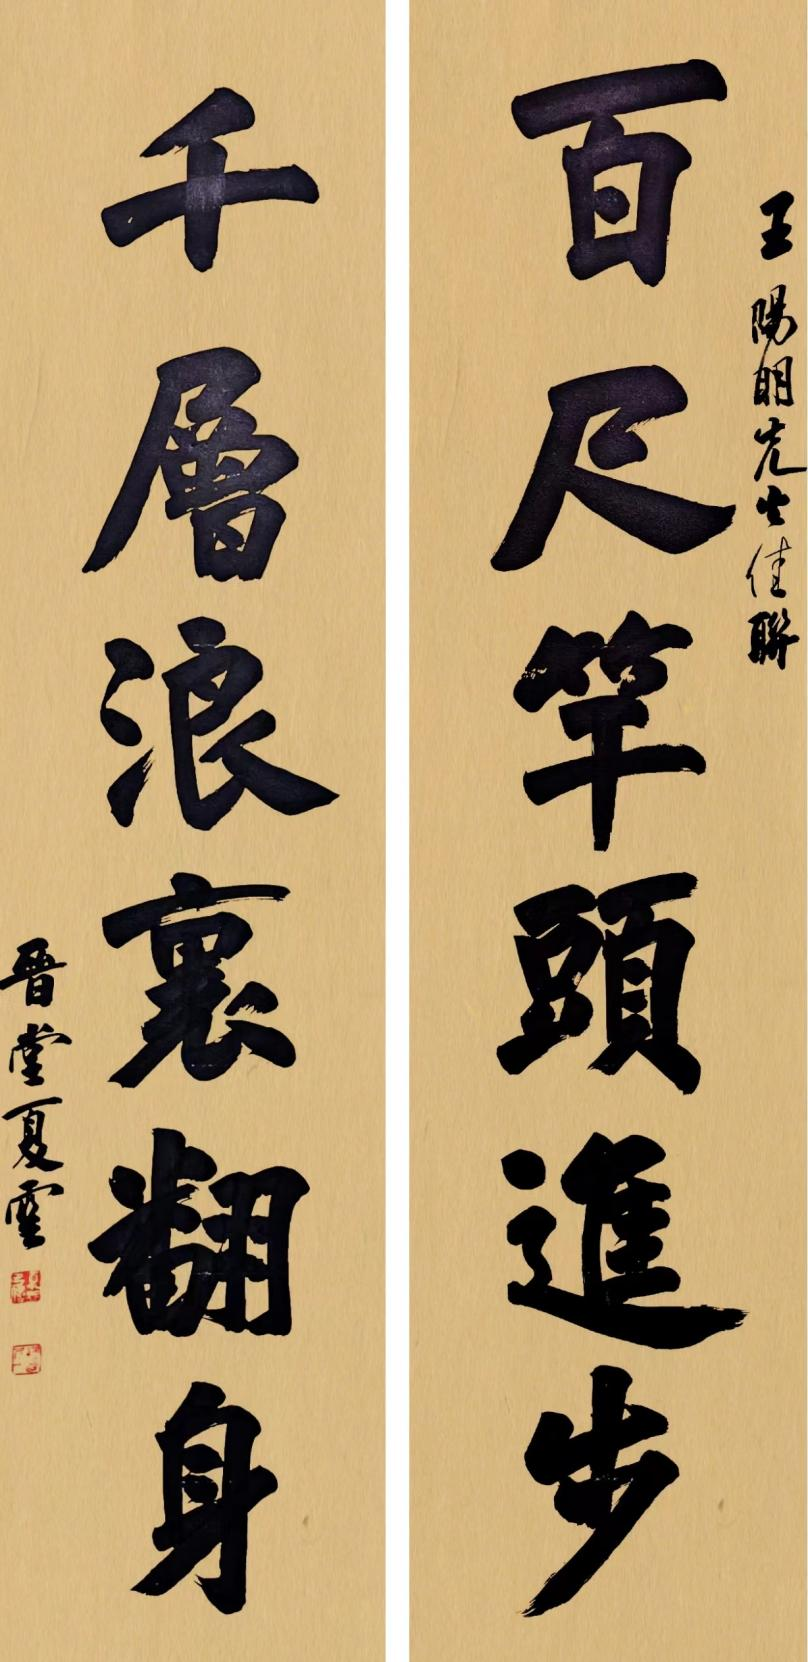 王陽明先生佳聯
百尺竿頭進步
千層浪裏翻身
晉堂夏雲